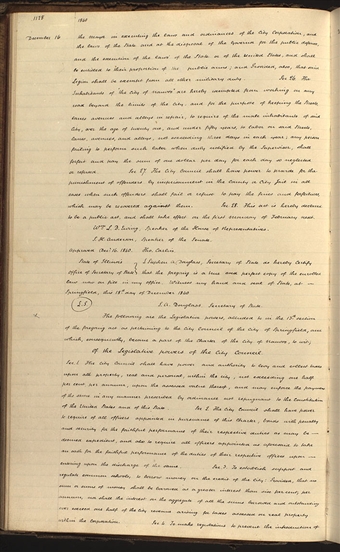 1178
1840
December 16
the Mayor in executing the laws and ordinances of the City Corporation, and
the laws of the State and at the disposal of the Governor for the public defence,
and the execution of the laws of the State or of the United States, and shall
be entitled to their proportion of the public arms; and Provided, also, that said
Legion shall be exempt from all other military duty. Sec 26. The
Inhabitants of the City of Nauvoo are hereby exempted from working on any
road beyond the limits of the City, and for the purpose of keeping the Streets
lanes avenues and alleys in repair, to require of the male inhabitants of said
City, over the age of twenty one, and under fifty years, to labor on said Streets,
lanes, avenues, and alleys, not exceeding three days in each year; any person
failing to perform such labor when duly notified by the Supervisor, shall
forfeit and pay the sum of one dollar per day for each day so neglected
or refused. Sec 27. The City Council shall have power to provide for the
punishment of offenders by imprisonment in the County or City Jail in all
cases when such offenders shall fail or refuse to pay the fines and forfeitures
which may be recovered against them. Sec 28. This act is hereby declared
to be a public act, and shall take effect on the first Monday of February next.
Wm. L. D. Ewing, Speaker of the House of Representatives.
S. H. Anderson, Speaker of the Senate.
Approved Dec. 16. 1840. Tho. Carlin
State of Illinois } I Stephen A. Douglass, Secretary of State do hereby Certify
Office of Secretary of State } that the foregoing is a true and perfect copy of the enrolled
law now on file in my office. Witness my hand and seal of State, at
Springfield, this 18th day of December 1840.
L.S. S. A. Douglass. Secretary of State.
The following are the Legislative powers, alluded to in the 13th section
of the foregoing act as pertaining to the City Council of the City of Springfield, and
which, consequently, become a part of the Charter of the City of Nauvoo, to wit;
Of the Legislative powers of the City Council.
Sec 1. The City Council shall have power and authority to levy and collect taxes
upon all property, real and personal, within the City, not exceeding one half
per cent. per annum, upon the assessed value thereof, and may enforce the payment
of the same in any manner prescribed by ordinance not repugnant to the Constitution
of the United States and of this State Sec 2. The City Council shall have power
to require of all officers appointed in pursuance of this Charter, bonds with penalty
and security for the faithful performance of their respective duties as may be
deemed expedient, and also to require all officers appointed as aforesaid to take
an oath for the faithful performance of the duties of their respective offices upon
entering upon the discharge of the same. Sec 3. To establish support and
regulate common schools, to borrow money on the credit of the City: Provided, that no
sum or sums of money shall be borrowed at a greater interest than six per cent. per
annum, nor shall the interest on the aggregate of all the sums borrowed and outstanding
ever exceed one half of the City revenue arising for taxes assessed on real property
within the Corporation Sec 4. To make regulations to prevent the introduction of